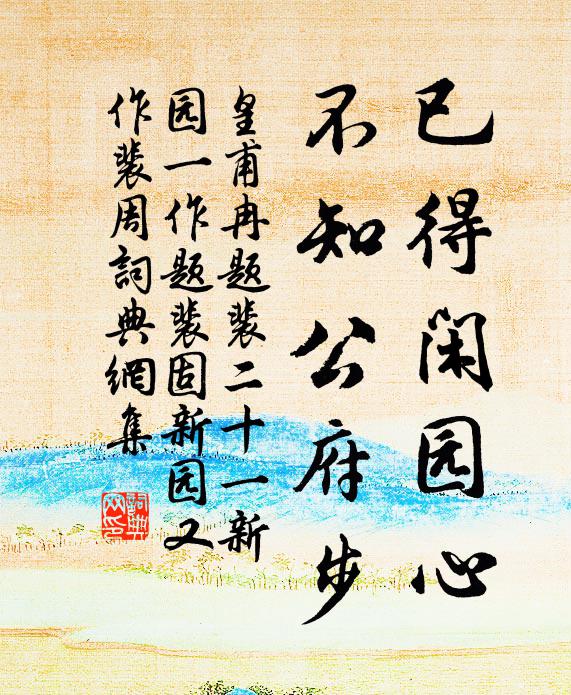 已得闲园心
不知公府步
皇甫冉题裴二十一新
园一作题裴固新园又
作裴周詞典網集
詞典
网印